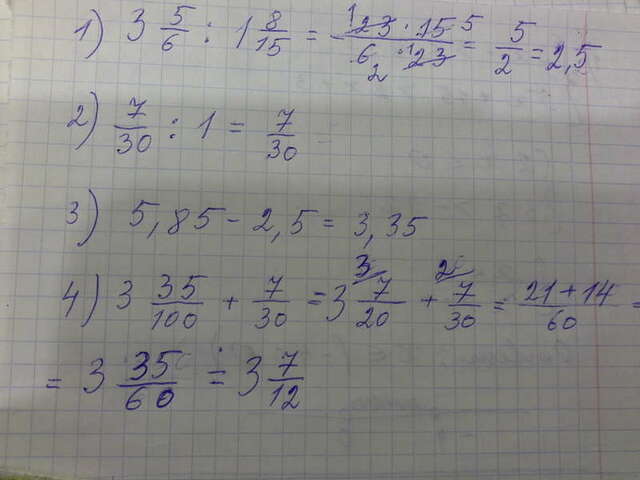 1) 3 5/6 : 1 8/15 = 23 · 15 / 6 · 23 = 5/2 = 2,5
2) 7/30 : 1 = 7/30
3) 5,85 - 2,5 = 3,35
4) 3 35/100 + 7/30 = 3 7/20 + 7/30 = 21 + 14 / 60 =
= 3 35/60 = 3 7/12